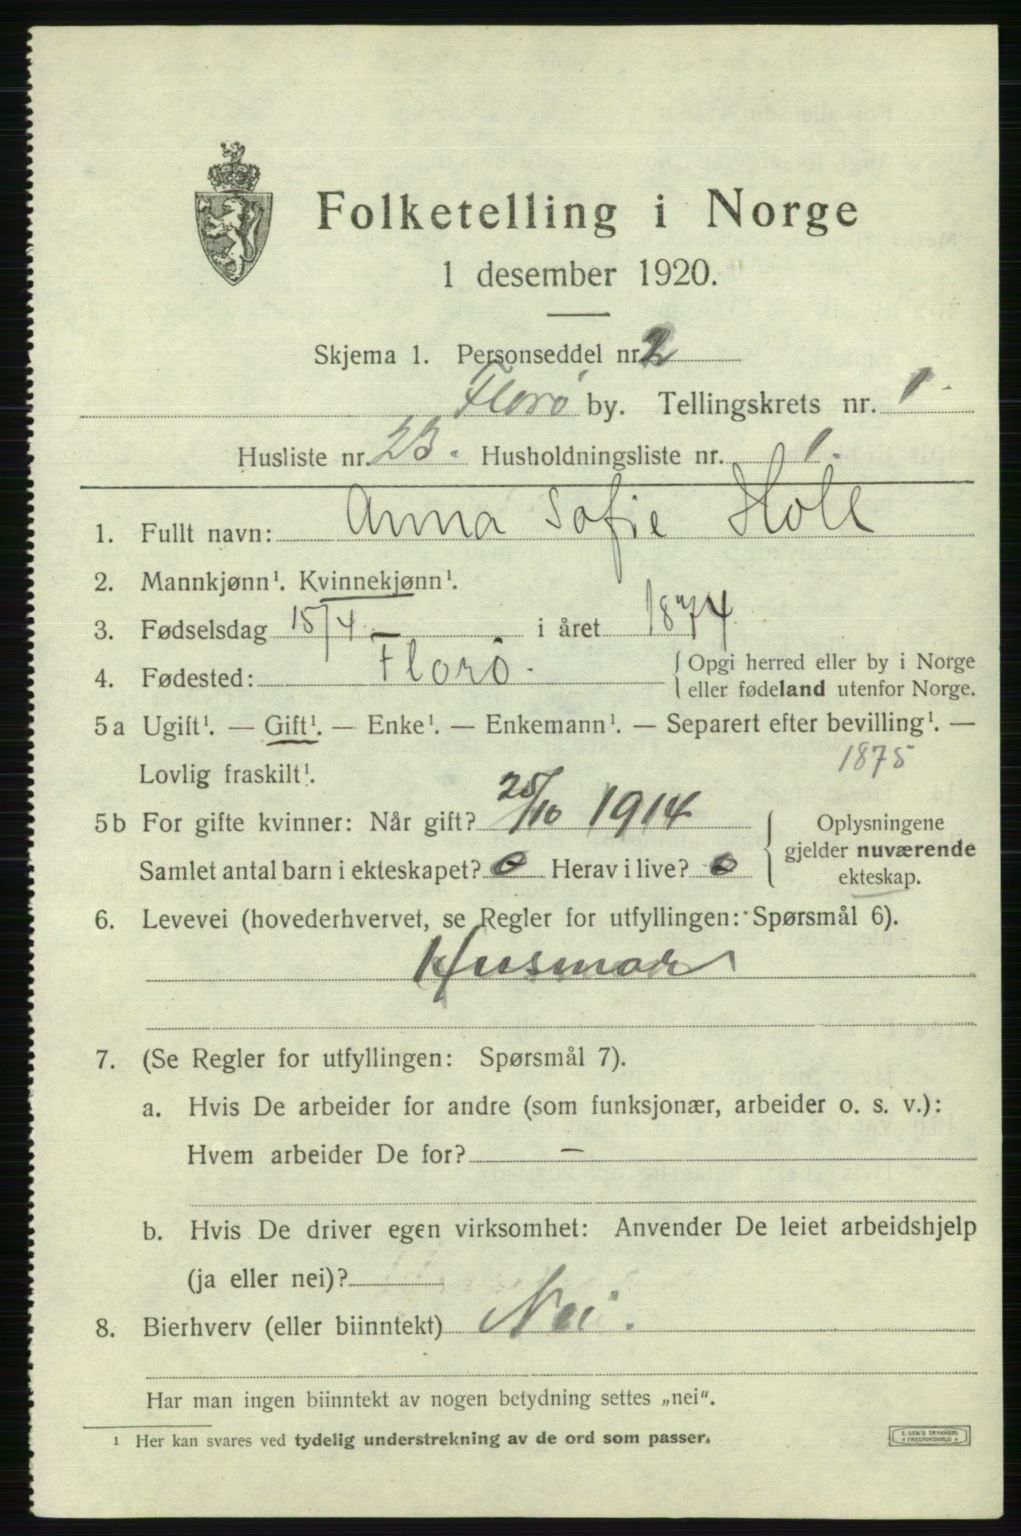 Folketelling i Norge
1 desember 1920.
Skjema 1. Personseddel nr. 2
Florø by. Tellingskrets nr. 1.
Husliste nr. 23. Husholdningsliste nr. 1.
1. Fullt navn: Anna Sofie Holl
2. Mannkjønn¹. Kvinnekjønn¹.
3. Fødselsdag 15/4 i året 1874
4. Fødested: Florö. Opgi herred eller by i Norge
eller fødeland utenfor Norge.
5a Ugift¹. — Gift¹. — Enke¹. — Enkemann¹. — Separert efter bevilling¹. —
Lovlig fraskilt¹. 1875
5b For gifte kvinner: Når gift? 25/10 1914 Oplysningene
gjelder nuværende
Samlet antal barn i ekteskapet? 0 Herav i live? 0 ekteskap.
6. Levevei (hovederhvervet, se Regler for utfyllingen: Spørsmål 6).
Husmor
7. (Se Regler for utfyllingen: Spørsmål 7).
a. Hvis De arbeider for andre (som funksjonær, arbeider o. s. v.):
Hvem arbeider De for? —
b. Hvis De driver egen virksomhet: Anvender De leiet arbeidshjelp
(ja eller nei)?
8. Bierhverv (eller biinntekt) Nei.
Har man ingen biinntekt av nogen betydning settes „nei".
¹ Her kan svares ved tydelig understrekning av de ord som passer.